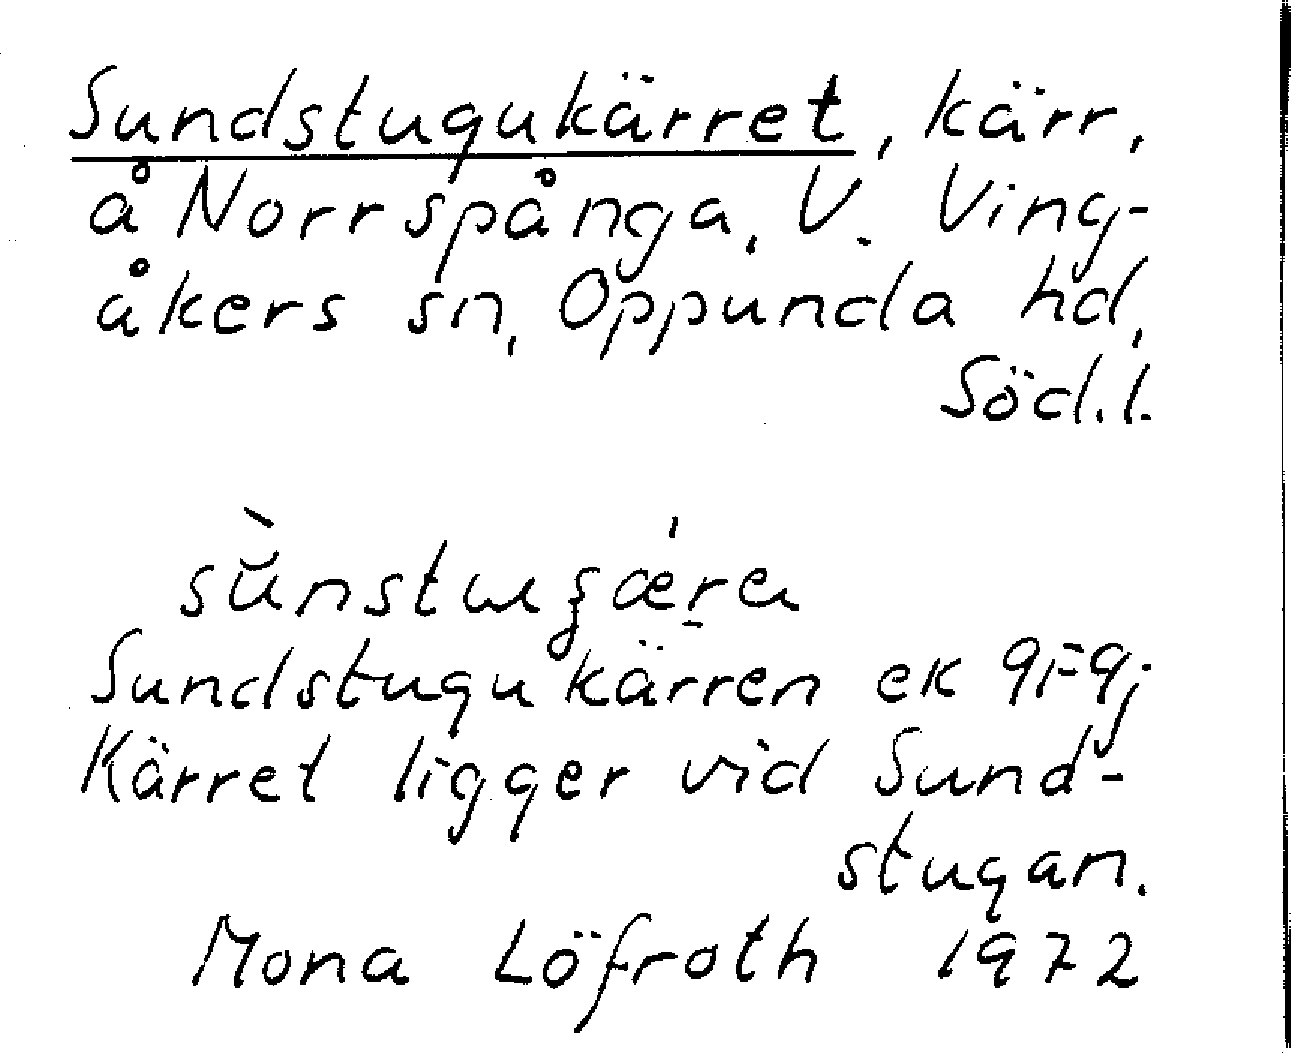 Sundstugukärret, kärr,
å Norrspånga, V. Ving-
åkers sn, Oppunda hd,
Söd.l.
Sundstugukärren ek 9F9j
Kärret ligger vid Sund-
stugan.
Mona Löfroth 1972